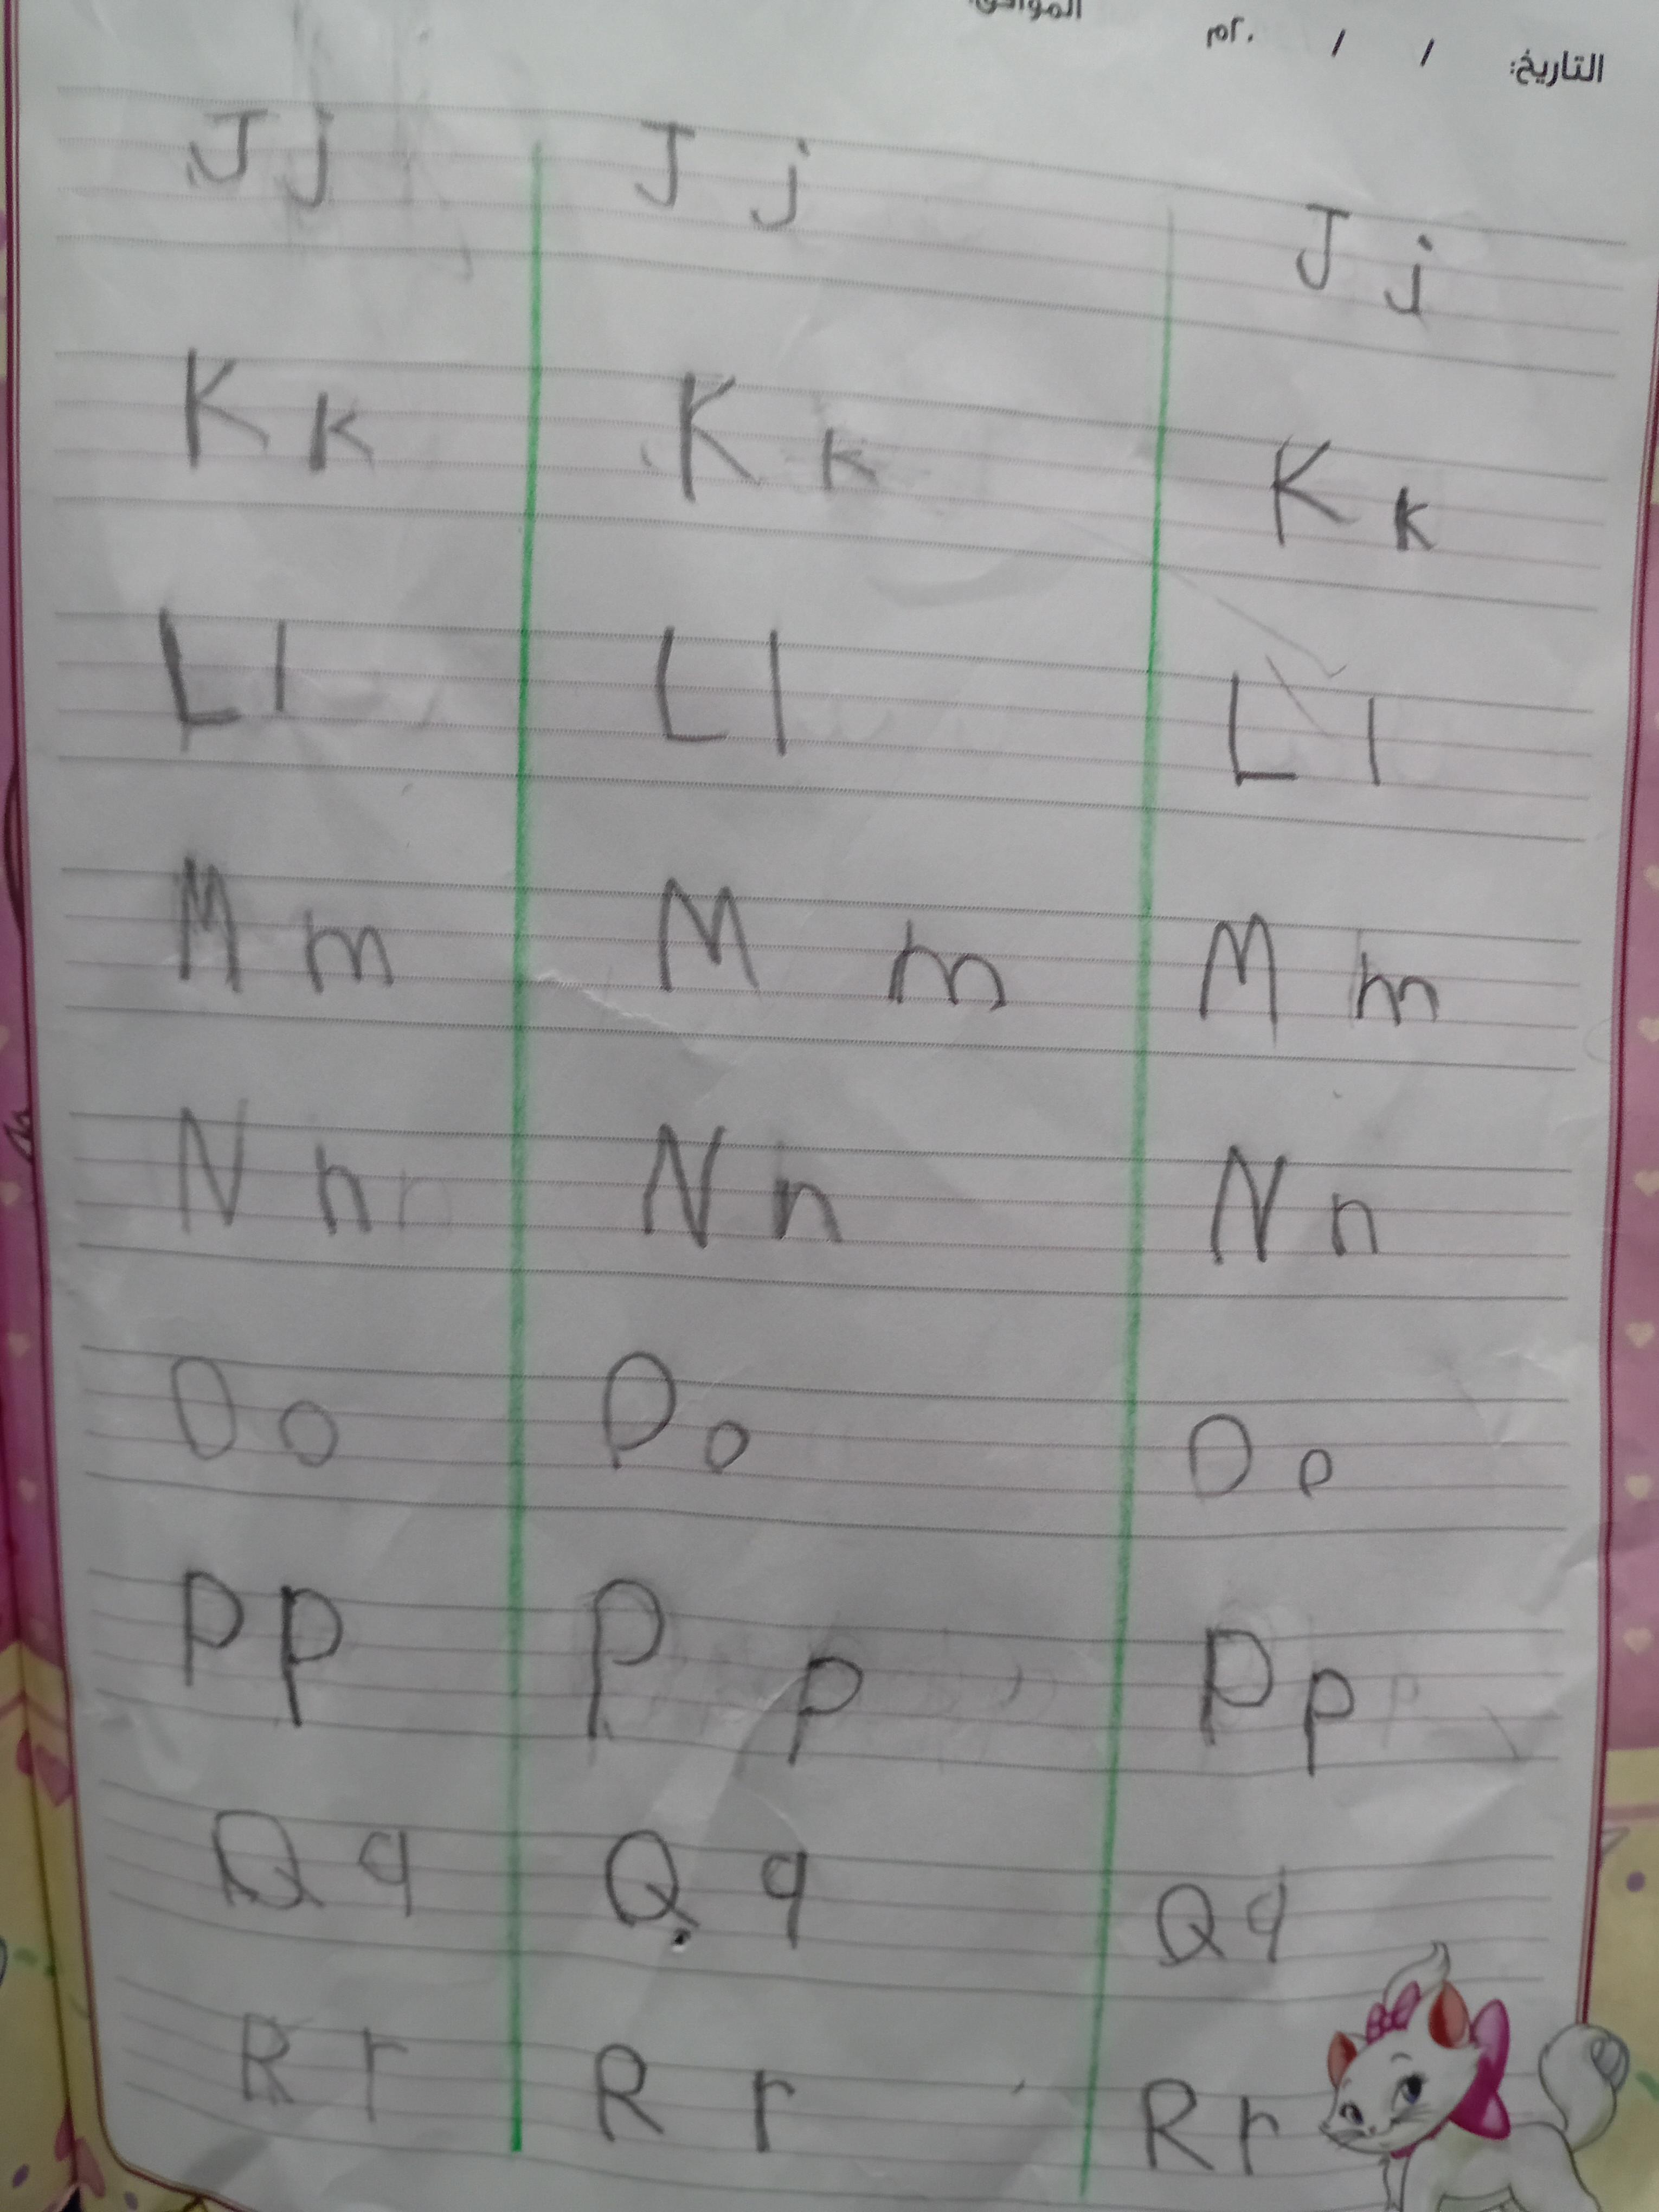 الموافق:
التاريخ: / / ٢٠م
J j J j J j
K k K k K k
L l L l L l
M m M m M m
N n n N n N n
O o O o O o
P p P p P p p
Q q Q q Q q
R r R r R r